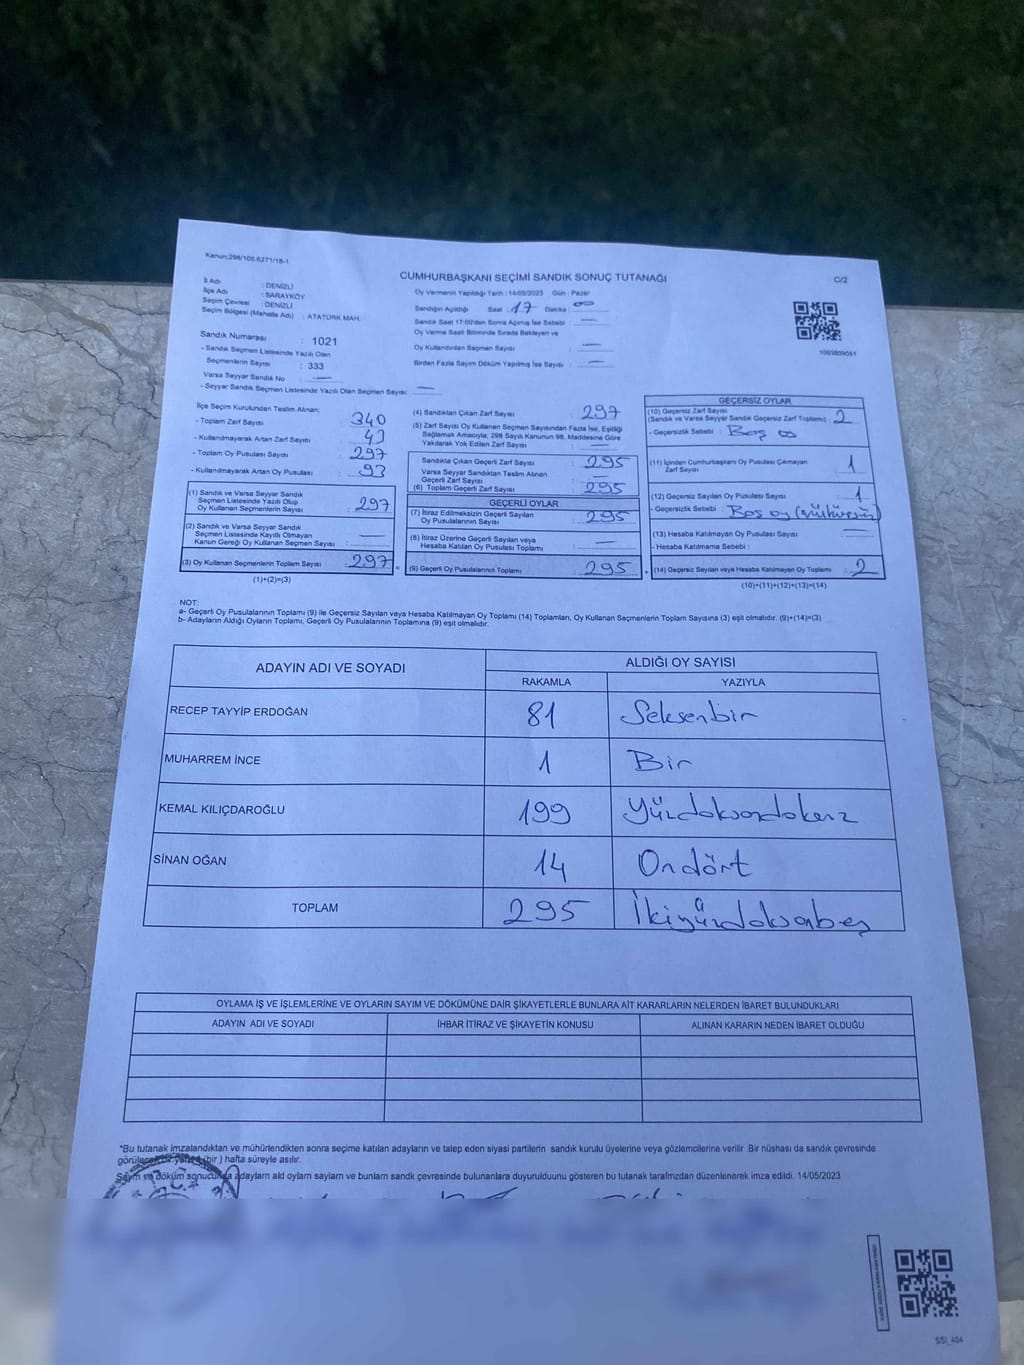 Kanun;298/105,6271/18-1
CUMHURBAŞKANI SEÇİMİ SANDIK SONUÇ TUTANAĞI
C/2
İl Adı : DENİZLİ
İlçe Adı : SARAYKÖY
Seçim Çevresi : DENİZLİ
Seçim Bölgesi (Mahalle Adı) : ATATÜRK MAH.
Oy Vermenin Yapıldığı Tarih : 14/05/2023 Gün : Pazar
Sandığın Açıldığı Saat : 17 Dakika : 00
Sandık Saat 17:00'den Sonra Açılmış İse Sebebi : —
Oy Verme Saati Bitiminde Sırada Bekleyen ve
Oy Kullandırılan Seçmen Sayısı : —
Birden Fazla Sayım Döküm Yapılmış İse Sayısı : —
1093809051
Sandık Numarası : 1021
- Sandık Seçmen Listesinde Yazılı Olan
Seçmenlerin Sayısı : 333
Varsa Seyyar Sandık No : —
- Seyyar Sandık Seçmen Listesinde Yazılı Olan Seçmen Sayısı : —
İlçe Seçim Kurulundan Teslim Alınan;
- Toplam Zarf Sayısı : 340
- Kullanılmayarak Artan Zarf Sayısı : 43
- Toplam Oy Pusulası Sayısı : 297
- Kullanılmayarak Artan Oy Pusulası : 93
(1) Sandık ve Varsa Seyyar Sandık
Seçmen Listesinde Yazılı Olup
Oy Kullanan Seçmenlerin Sayısı : 297
(2) Sandık ve Varsa Seyyar Sandık
Seçmen Listesinde Kayıtlı Olmayan
Kanun Gereği Oy Kullanan Seçmen Sayısı : —
(3) Oy Kullanan Seçmenlerin Toplam Sayısı : 297
(1)+(2)=(3)
(4) Sandıktan Çıkan Zarf Sayısı : 297
(5) Zarf Sayısı Oy Kullanan Seçmen Sayısından Fazla İse, Eşitliği
Sağlamak Amacıyla; 298 Sayılı Kanunun 98. Maddesine Göre
Yakılarak Yok Edilen Zarf Sayısı : —
Sandıkta Çıkan Geçerli Zarf Sayısı : 295
Varsa Seyyar Sandıktan Teslim Alınan
Geçerli Zarf Sayısı : —
(6) Toplam Geçerli Zarf Sayısı : 295
GEÇERLİ OYLAR
(7) İtiraz Edilmeksizin Geçerli Sayılan
Oy Pusulalarının Sayısı : 295
(8) İtiraz Üzerine Geçerli Sayılan veya
Hesaba Katılan Oy Pusulası Toplamı : —
(9) Geçerli Oy Pusulalarının Toplamı : 295
GEÇERSİZ OYLAR
(10) Geçersiz Zarf Sayısı
(Sandık ve Varsa Seyyar Sandık Geçersiz Zarf Toplamı) : 2
- Geçersizlik Sebebi : Boş
(11) İçinden Cumhurbaşkanı Oy Pusulası Çıkmayan
Zarf Sayısı : 1
(12) Geçersiz Sayılan Oy Pusulası Sayısı : 1
- Geçersizlik Sebebi : Boş oy (mühürsüz)
(13) Hesaba Katılmayan Oy Pusulası Sayısı : —
- Hesaba Katılmama Sebebi :
(14) Geçersiz Sayılan veya Hesaba Katılmayan Oy Toplamı : 2
(10)+(11)+(12)+(13)=(14)
NOT:
a- Geçerli Oy Pusulalarının Toplamı (9) ile Geçersiz Sayılan veya Hesaba Katılmayan Oy Toplamı (14) Toplamları, Oy Kullanan Seçmenlerin Toplam Sayısına (3) eşit olmalıdır. (9)+(14)=(3)
b- Adayların Aldığı Oyların Toplamı, Geçerli Oy Pusulalarının Toplamına (9) eşit olmalıdır.
ADAYIN ADI VE SOYADI
ALDIĞI OY SAYISI
RAKAMLA YAZIYLA
RECEP TAYYİP ERDOĞAN 81 Seksenbir
MUHARREM İNCE 1 Bir
KEMAL KILIÇDAROĞLU 199 Yüzdoksandokuz
SİNAN OĞAN 14 Ondört
TOPLAM 295 İkiyüzdoksanbeş
OYLAMA İŞ VE İŞLEMLERİNE VE OYLARIN SAYIM VE DÖKÜMÜNE DAİR ŞİKAYETLERLE BUNLARA AİT KARARLARIN NELERDEN İBARET BULUNDUKLARI
ADAYIN ADI VE SOYADI İHBAR İTİRAZ VE ŞİKAYETİN KONUSU ALINAN KARARIN NEDEN İBARET OLDUĞU
*Bu tutanak imzalandıktan ve mühürlendikten sonra seçime katılan adayların ve talep eden siyasi partilerin sandık kurulu üyelerine veya gözlemcilerine verilir .Bir nüshası da sandık çevresinde
görülecek bir yere (bir ) hafta süreyle asılır.
Sayım ve döküm sonucunda adayların ald oyların sayların ve bunların sandk çevresinde bulunanlara duyurulduunu gösteren bu tutanak tarafmzdan düzenlenerek imza edildi. 14/05/2023
SSI_404